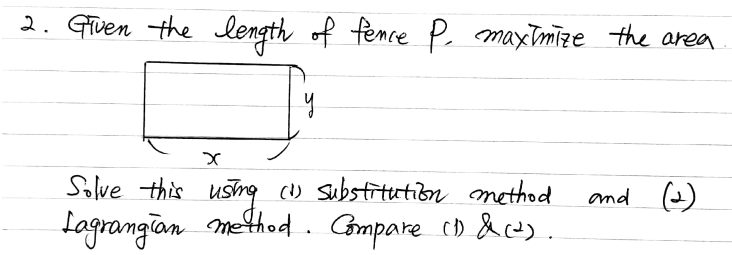 2. Given the length of fence P. maximize the area.
y
x
Solve this using (1) substitution method and (2)
Lagrangian method. Compare (1) & (2).